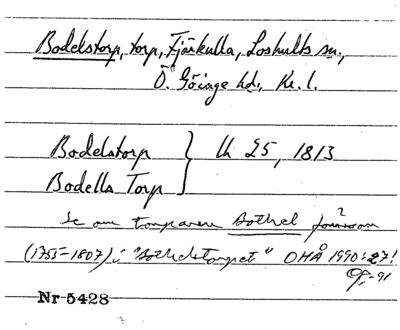 Bodelstorp, torp, Fjärkulla, Loshults sn.,
Ö. Göinge hd., Kr. l.
Bodelstorp } lk 25, 1813
Bodells Torp
Se om torparen Bothel
(1755-1807) i "Bothelstorpet" OHÅ 1990:27!
-91
Nr 5428